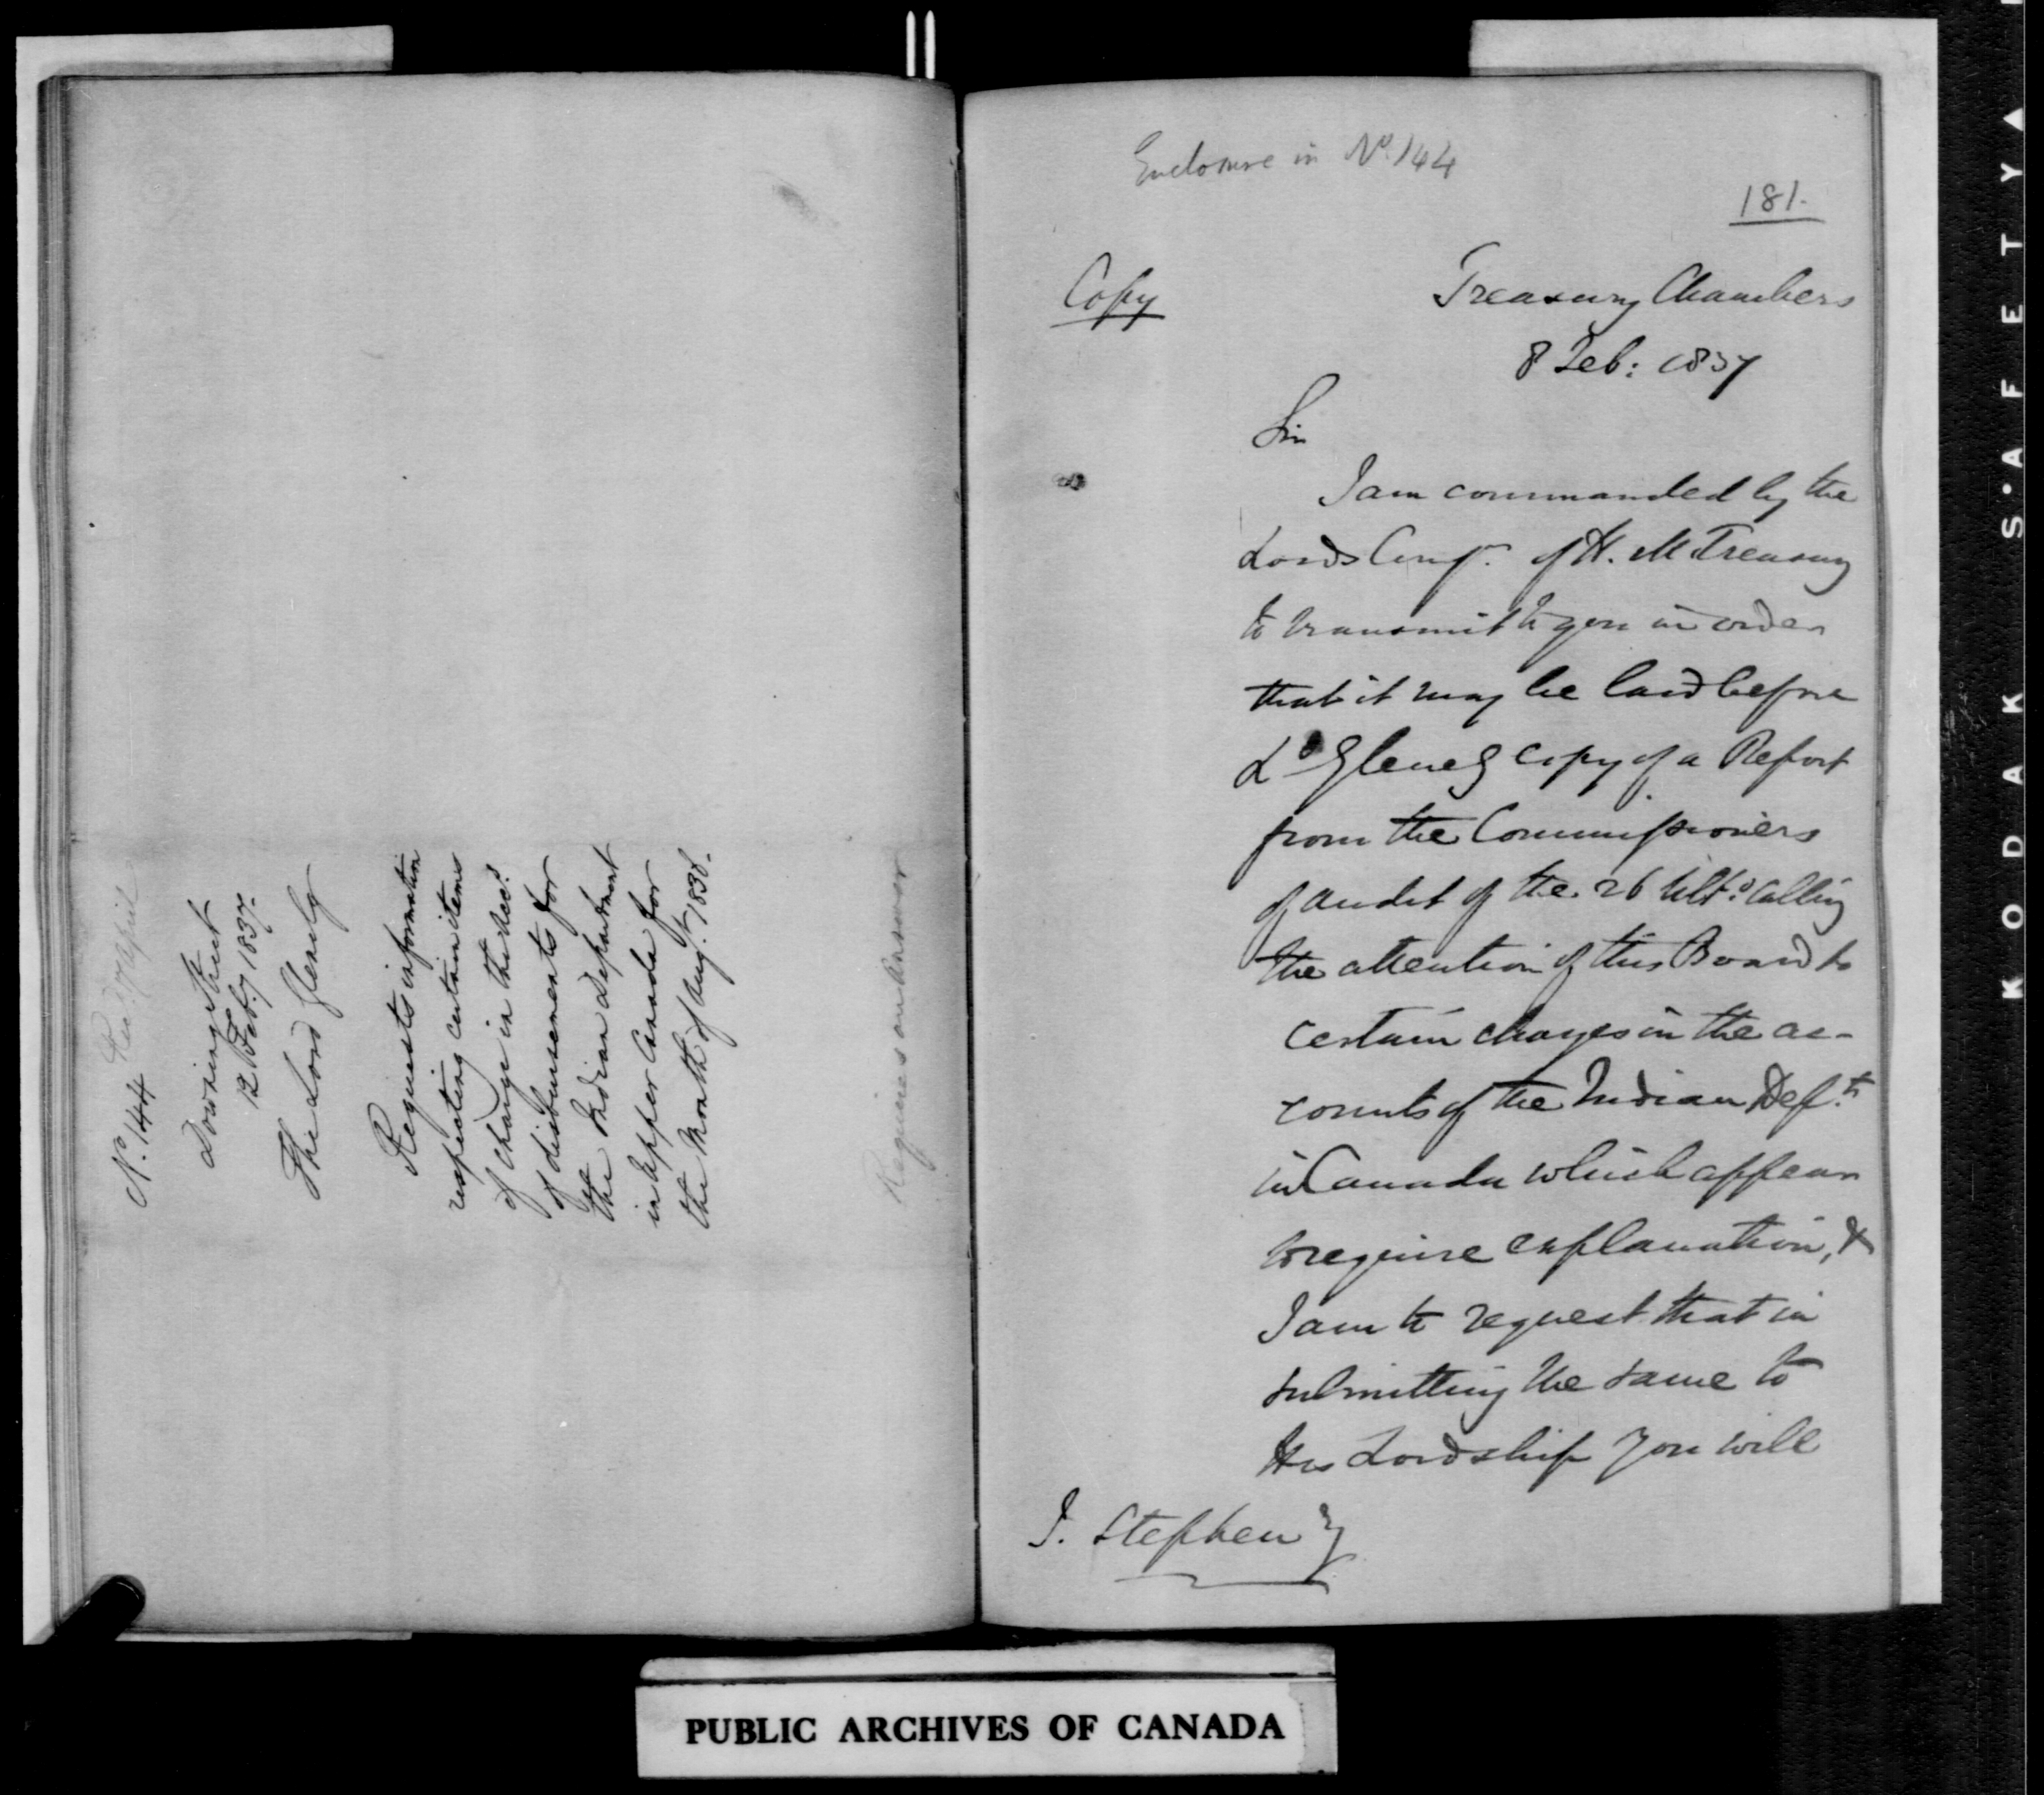 Nº. 144 Rec.d 7 April
Downing Street
12 Feb.y 1837.
The Lord Glenelg
Requests information
respecting certain items
of charge in the Acc.t
of disbursements for
the Indian Department
in Upper Canada for
the Month of Aug.t
Requires an Answer
Enclosure in Nº. 144
181.
Copy
Treasury Chambers
8 Feb: 1837
Sir
I am commanded by the
Lords Comrs. of H. M Treasury
to transmit to you in order
that it may be laid before
Ld Glenelg copy of a Report
from the Commissioners
of Audit of the 26 Ulto. calling
the attention of this Board to
certain charges in the ac-
counts of the Indian Dept.
in Canada which appear
to require explanation, &
I am to request that in
submitting the same to
His Lordship you will
J. Stephen
PUBLIC ARCHIVES OF CANADA
KODAK S·AFETY▲